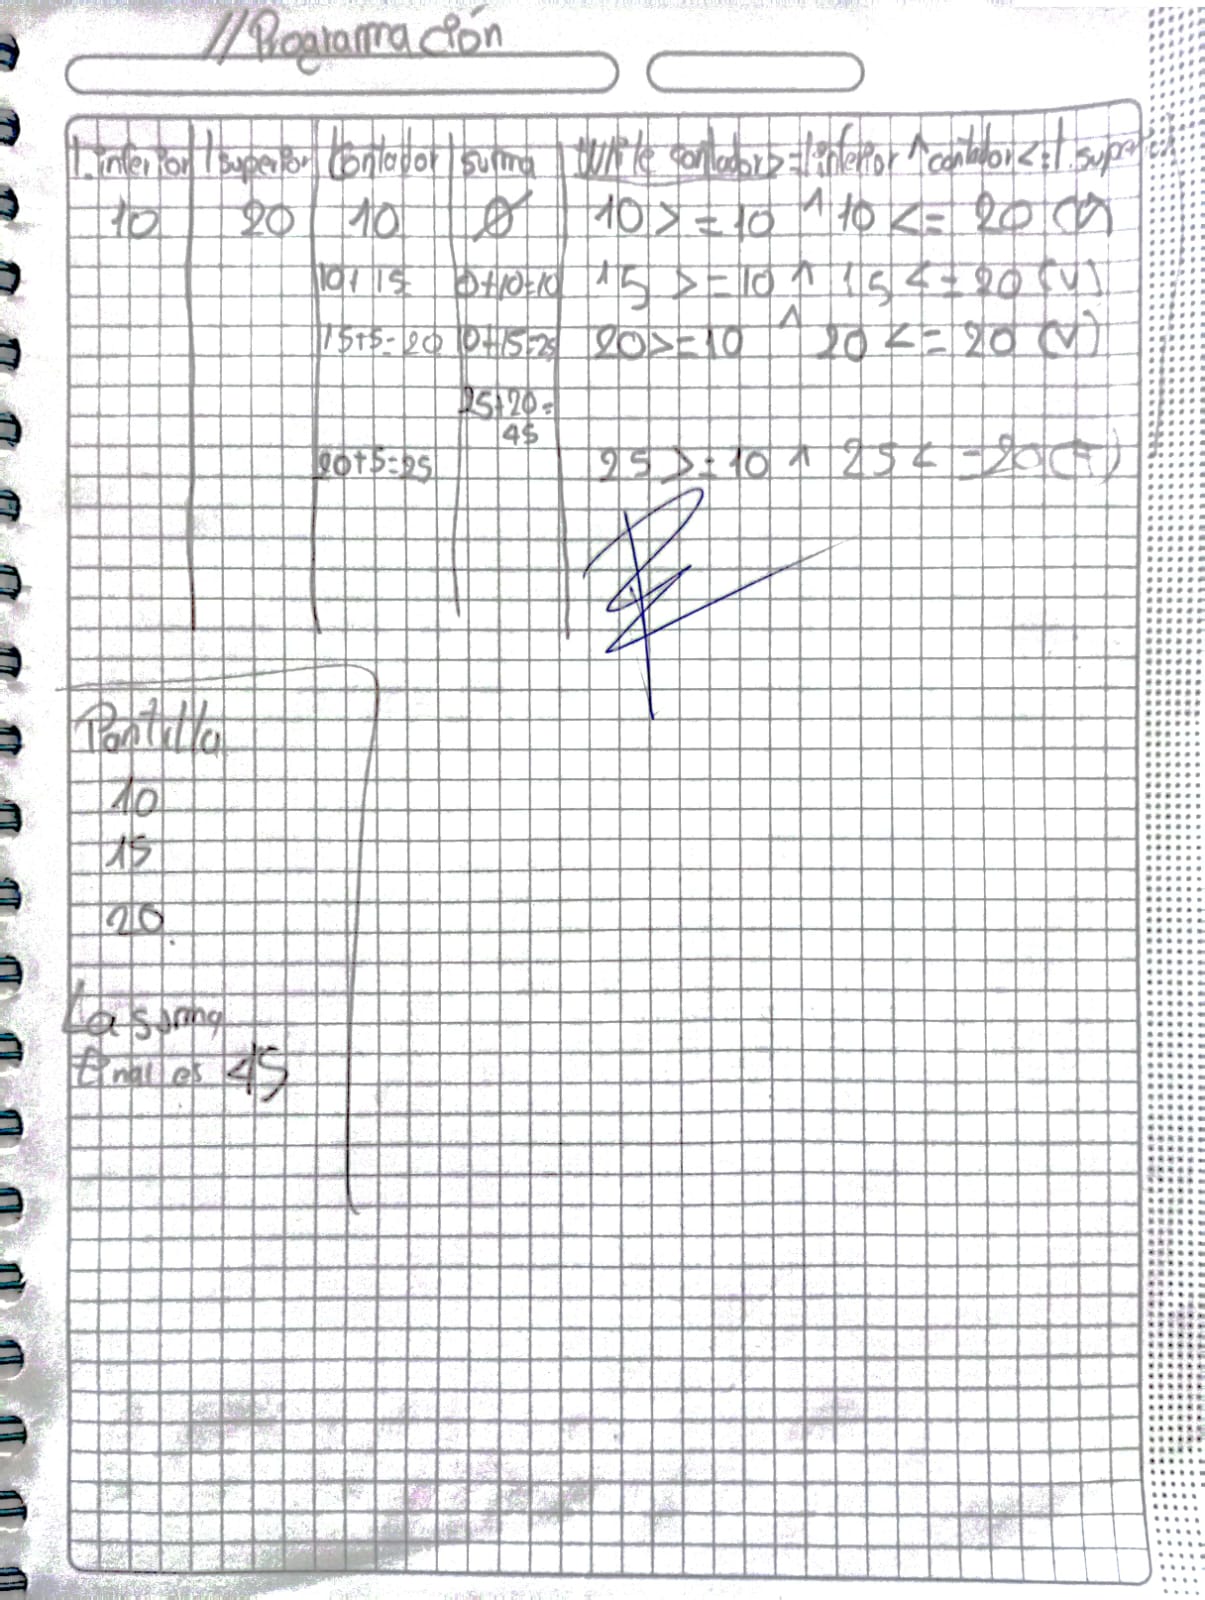 //Programación
l.inferior l superior Contador suma While contador>=l inferior ^ contador<=l. superior
10 20 10 0 10>=10 ^ 10<=20 (V)
10+15= 0+10=10 15>=10 ^ 15<=20 (V)
15+5=20 0+15=25 20>=10 ^ 20<=20 (V)
25+20=
45
20+5=25 25>=10 ^ 25<=20 (F)
Pantilla
10
15
20.
La suma
final es 45